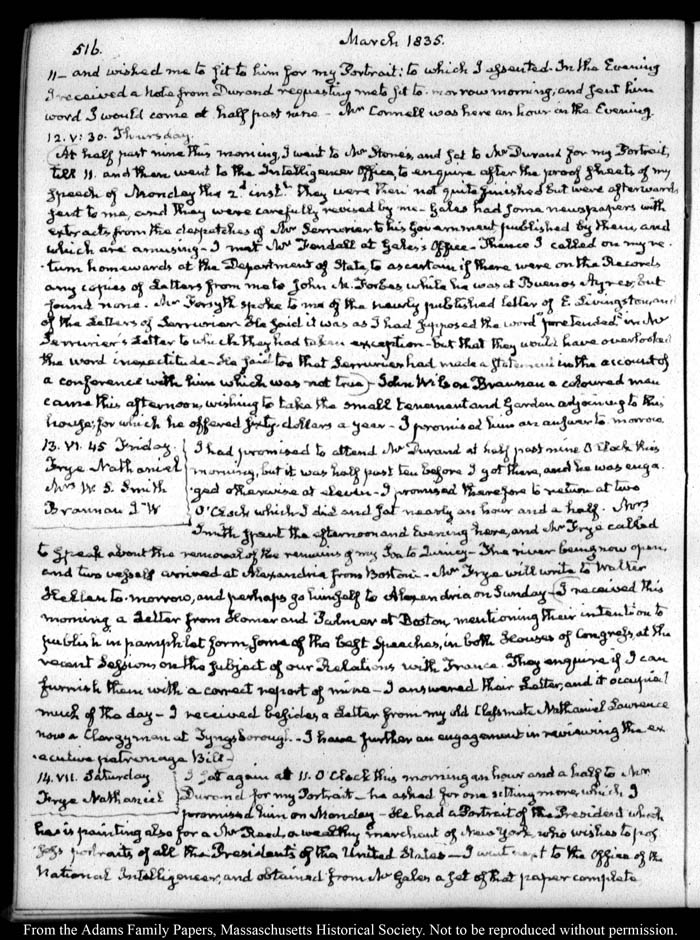 516.
March 1835.
11 – and wished me to sit to him for my Portrait: to which I assented. In the Evening
I received a Note from Durand requesting me to sit to-morrow morning, and sent him
word I would come at half past nine – Mr Connell was here an hour in the Evening
12. V: 30. Thursday.
At half past nine this morning, I went to Mr Stone's, and sat to Mr Durand for my Portrait,
till 11. and then went to the Intelligencer Office, to enquire after the proof sheets of my
speech of Monday the 2d inst. they were then not quite finished but were afterwards
sent to me, and they were carefully revised by me – Gales had some newspapers with
extracts from the despatches of Mr Serrurier to his Government published by them, and
which are amusing – I met Mr Kendall at Gales's Office – Thence I called on my re-
-turn homewards at the Department of State, to ascertain if there were on the Records
any copies of Letters from me to John M. Forbes while he was at Buenos Ayres, but
found none. Mr Forsyth spoke to me of the newly published letter of E. Livingston, and
of the Letters of Serrurier. He said it was as I had supposed the word "pretended" in Mr
Serrurier's Letter to which they had taken exception – but that they would have overlooked
the word inexactitude – He said too that Serrurier had made a statement in the account of
a conference with him which was not true – John Wilson Brannan a coloured man
came this afternoon, wishing to take the small tenement and Garden adjoining to this
house; for which he offered sixty dollars a year – I promised him an answer to-morrow
13. VI. 45 Friday.
Frye Nathaniel
Mrs W. S. Smith
Brannan J W
I had promised to attend Mr Durand at half past nine O'Clock this
morning, but it was half past ten before I got there, and he was enga-
-ged otherwise at eleven – I promised therefore to return at two
O'Clock which I did and sat nearly an hour and a half. Mrs
Smith spent the afternoon and Evening here, and Mr Frye called
to speak about the removal of the remains of my Son to Quincy – The river being now open,
and two vessels arrived at Alexandria from Boston – Mr Frye will write to Walter
Hellen to-morrow, and perhaps go himself to Alexandria on Sunday – I received this
morning a Letter from Homer and Palmer at Boston, mentioning their intention to
publish in pamphlet form, some of the best speeches, in both Houses of Congress, at the
recent Session, on the subject of our Relations with France. They enquire if I can
furnish them with a correct report of mine – I answered their Letter, and it occupied
much of the day – I received besides, a Letter from my old Classmate Nathaniel Lawrence
now a Clergyman at Tyngsborough. – I have further an engagement in reviewing the ex-
-ecutive patronage Bill –
14. VII. Saturday
Frye Nathaniel
I sat again at 11. O'Clock this morning an hour and a half to Mr
Durand for my Portrait – he asked for one sitting more, which I
promised him on Monday – He had a Portrait of the President which
he is painting also for a Mr Reed, a wealthy merchant of New York who wishes to pos-
-sess portraits of all the Presidents of the United States – I went next to the Office of the
National Intelligencer, and obtained from Mr Gales a set of that paper complete
From the Adams Family Papers, Massachusetts Historical Society. Not to be reproduced without permission.